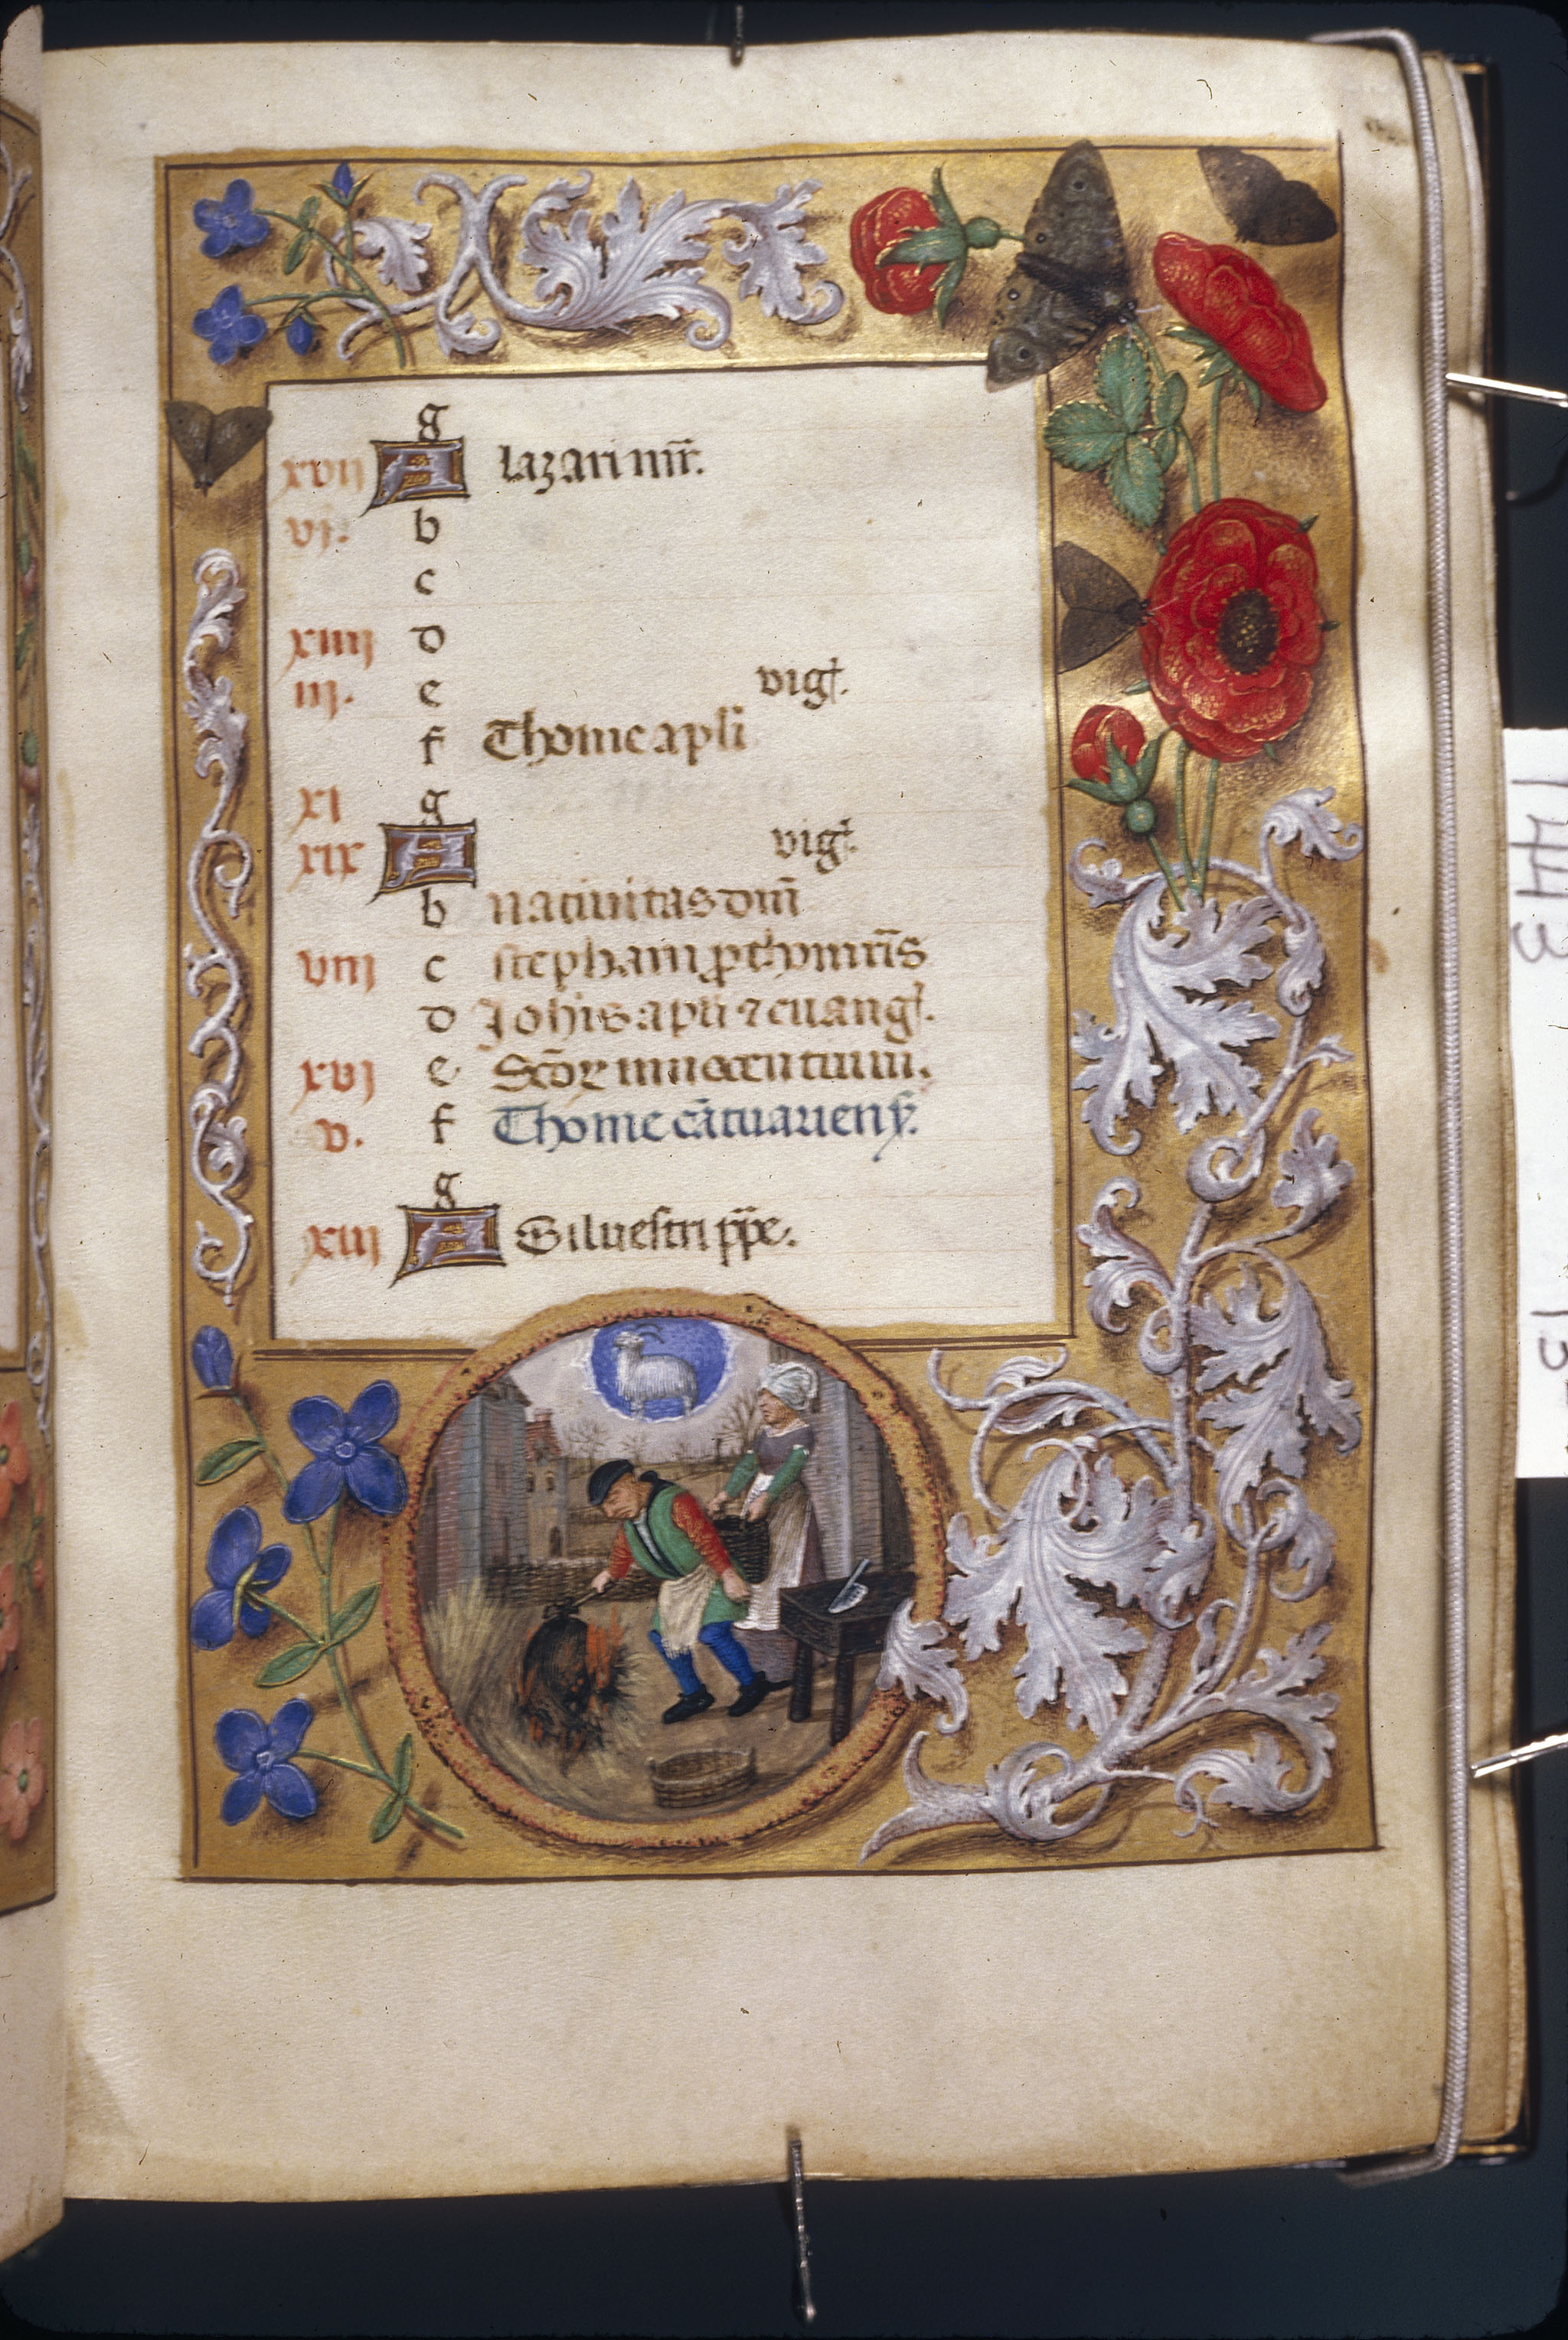 g
xvii A Lazari mr̄.
vj. b
c
xiiij d
iij. e vigł.
f Thome apli
xi g
xix A vigł.
b Natiuitas dm̄
viij c stephani ꝓthomr̄is
d Johis apłi ⁊ euangł.
xvj e Scōꝝ innocentium.
v. f Thome cātuarienſ.
g
xiij A Silueſtri pp̄e.
1443